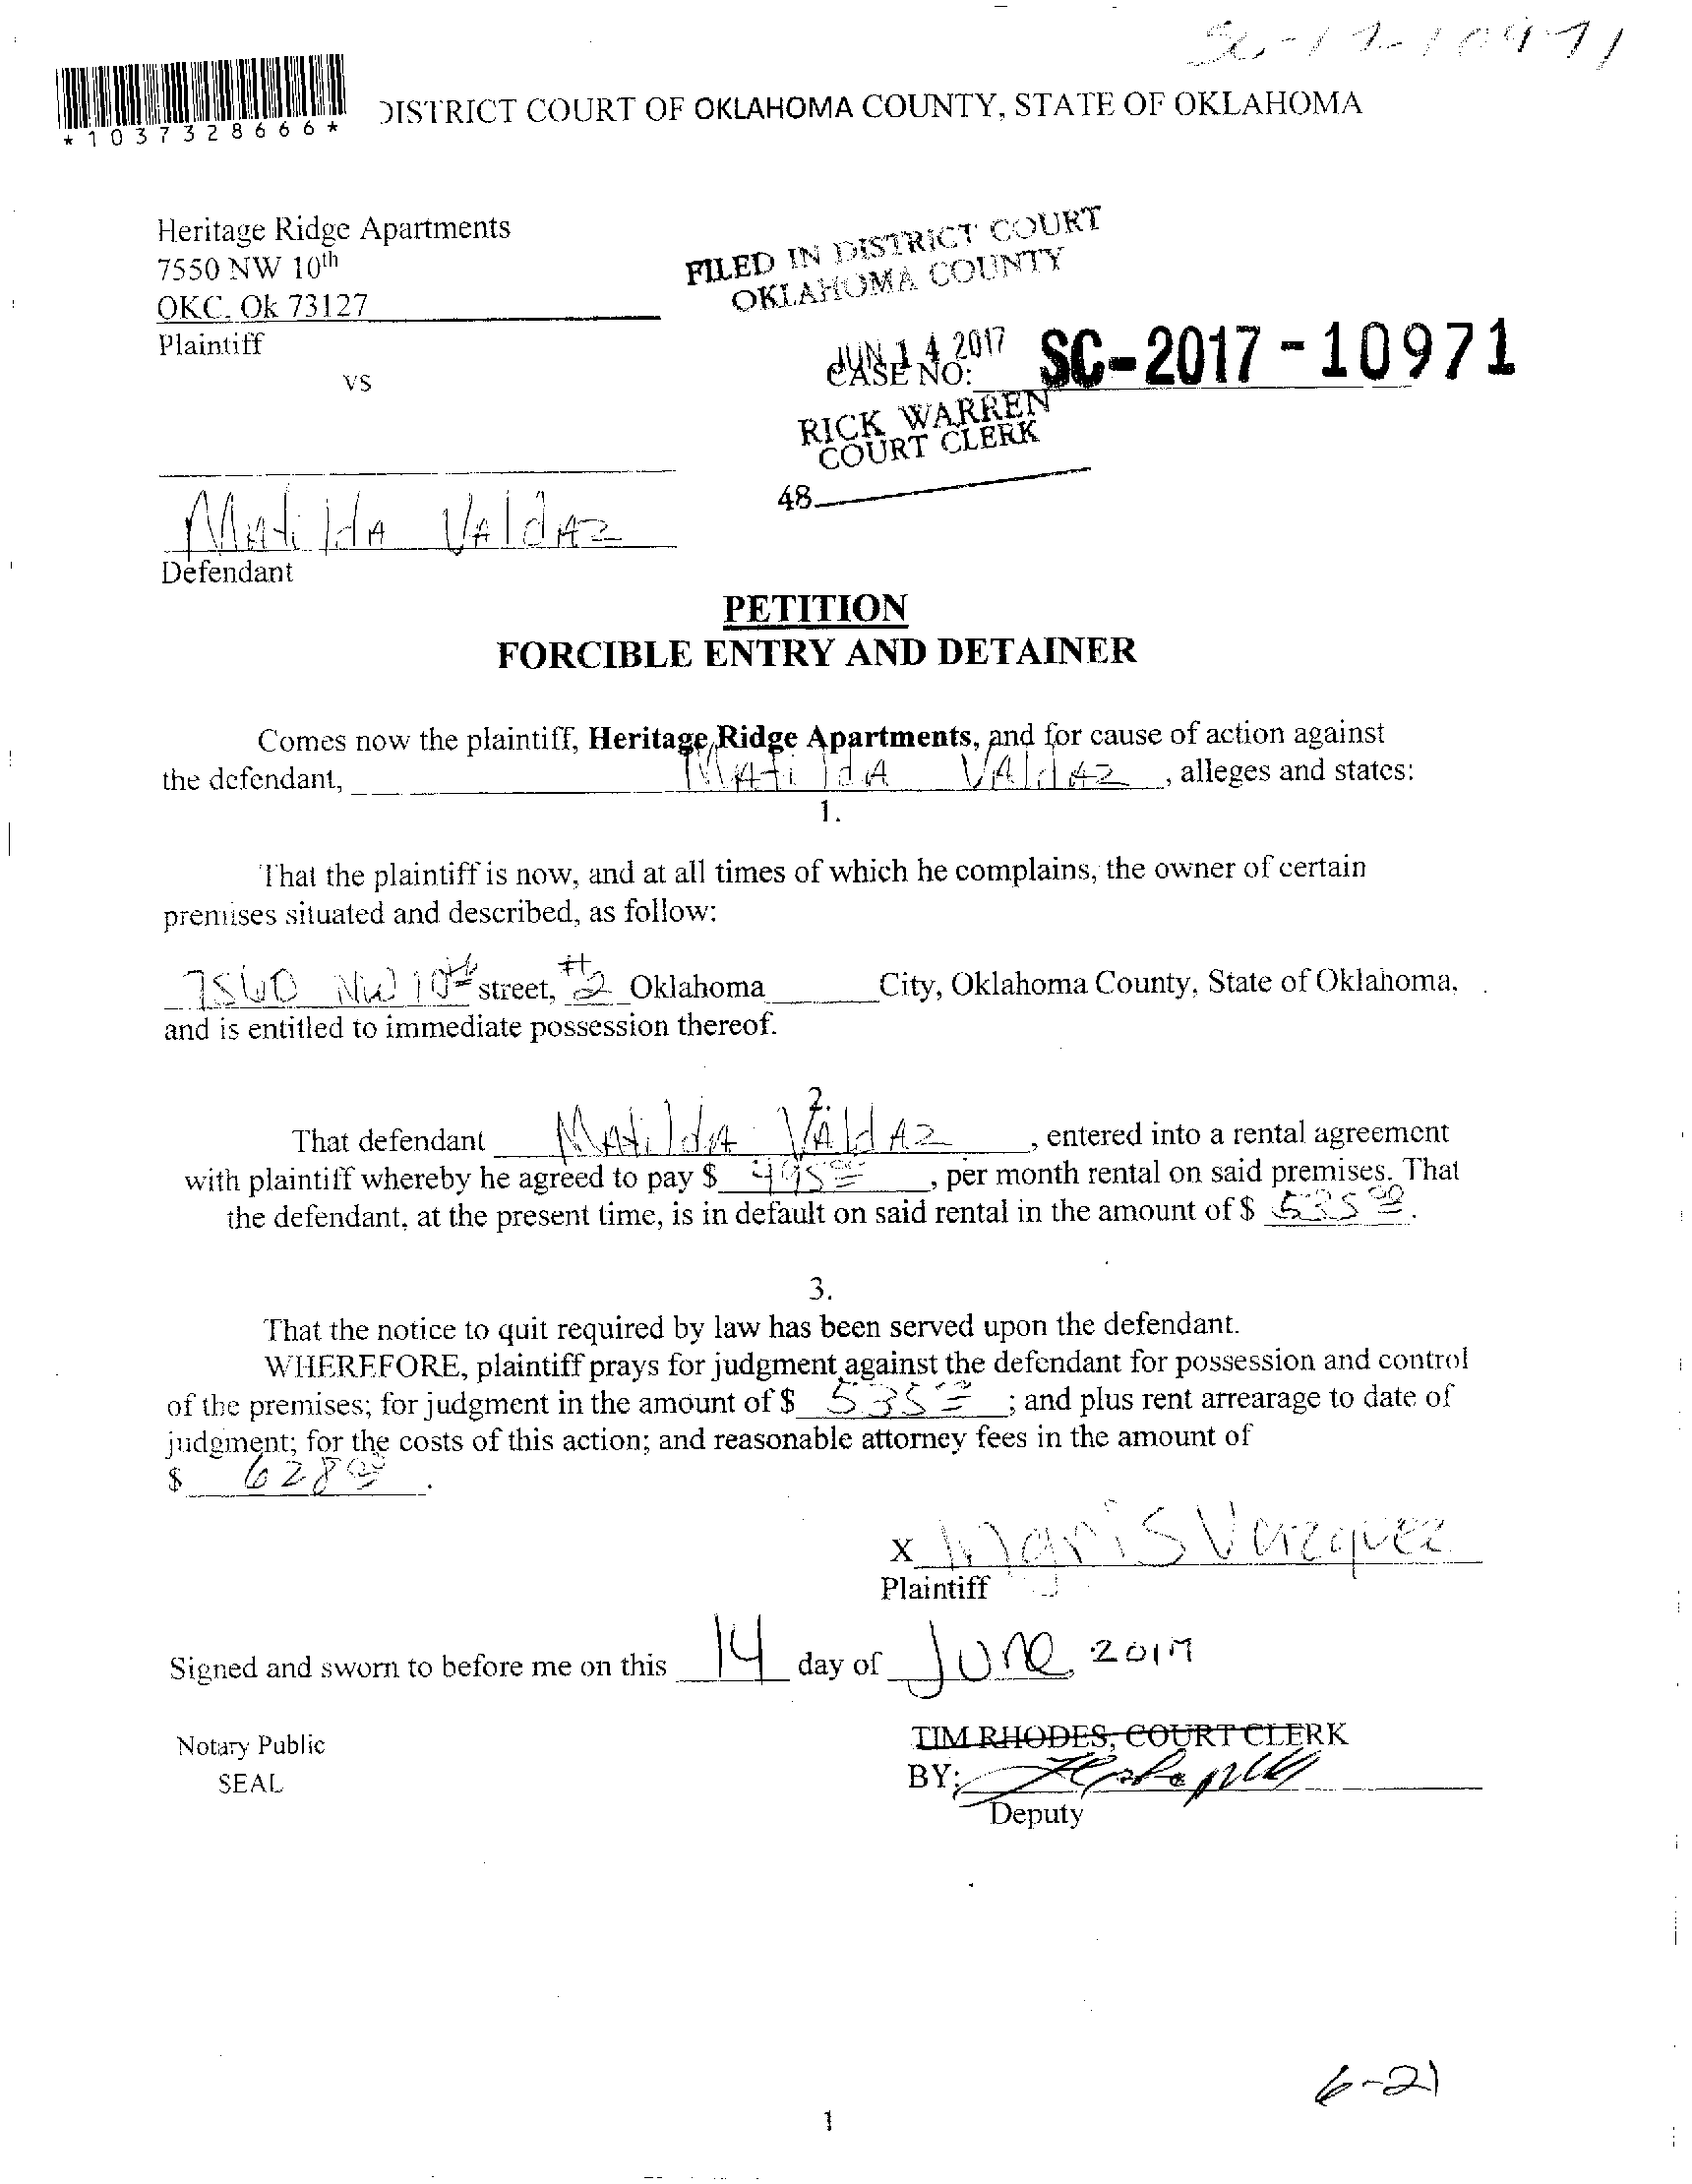 SC-17-10971
*1037328666*
DISTRICT COURT OF OKLAHOMA COUNTY, STATE OF OKLAHOMA
Heritage Ridge Apartments
7550 NW 10th
OKC, Ok 73127
Plaintiff
vs
FILED IN DISTRICT COURT
OKLAHOMA COUNTY
JUN 14 2017
CASE NO: SC-2017-10971
RICK WARREN
COURT CLERK
48
Matilda Valdaz
Defendant
PETITION
FORCIBLE ENTRY AND DETAINER
Comes now the plaintiff, Heritage Ridge Apartments, and for cause of action against
the defendant, Matilda Valdaz, alleges and states:
1.
That the plaintiff is now, and at all times of which he complains, the owner of certain
premises situated and described, as follow:
7560 NW 10th street, #2 Oklahoma City, Oklahoma County, State of Oklahoma,
and is entitled to immediate possession thereof.
2.
That defendant Matilda Valdaz, entered into a rental agreement
with plaintiff whereby he agreed to pay $ 495.00, per month rental on said premises. That
the defendant, at the present time, is in default on said rental in the amount of $ 535.00.
3.
That the notice to quit required by law has been served upon the defendant.
WHEREFORE, plaintiff prays for judgment against the defendant for possession and control
of the premises; for judgment in the amount of $ 535.00; and plus rent arrearage to date of
judgment; for the costs of this action; and reasonable attorney fees in the amount of
$ 628.00.
x Maris Vazquez
Plaintiff
Signed and sworn to before me on this 14 day of June, 2017
Notary Public
SEAL
TIM RHODES, COURT CLERK
BY:
Deputy
6-21
1